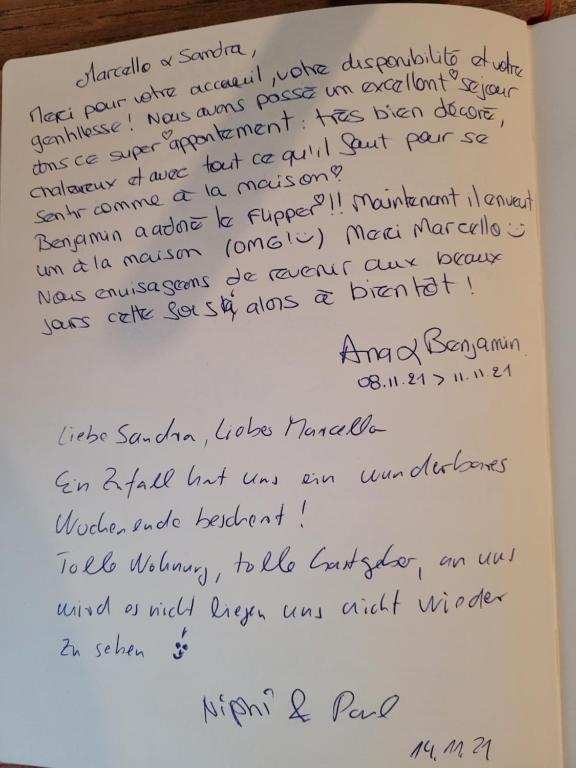 Marcello & Sandra,
Merci pour votre acceuil, votre disponibilité et votre
gentillesse! Nous avons passé un excellent séjour
dans ce super appartement : très bien décoré,
chaleureux et avec tout ce qu'il faut pour se
sentir comme à la maison♡
Benjamin a adoré le Flipper♡!! Maintenant il en veut
un à la maison (OMG! ☺) Merci Marcello ☺
Nous envisageons de revenir aux beaux
jours cette fois, alors à bientôt !
Ana & Benjamin
08.11.21 > 11.11.21
Liebe Sandra, Liebes Marcello
Ein Zufall hat uns ein wunderbares
Wochenende beschert !
Tolle Wohnung, tolle Gastgeber, an uns
wird es nicht liegen uns nicht wieder
zu sehen
& Paul
14.11.21